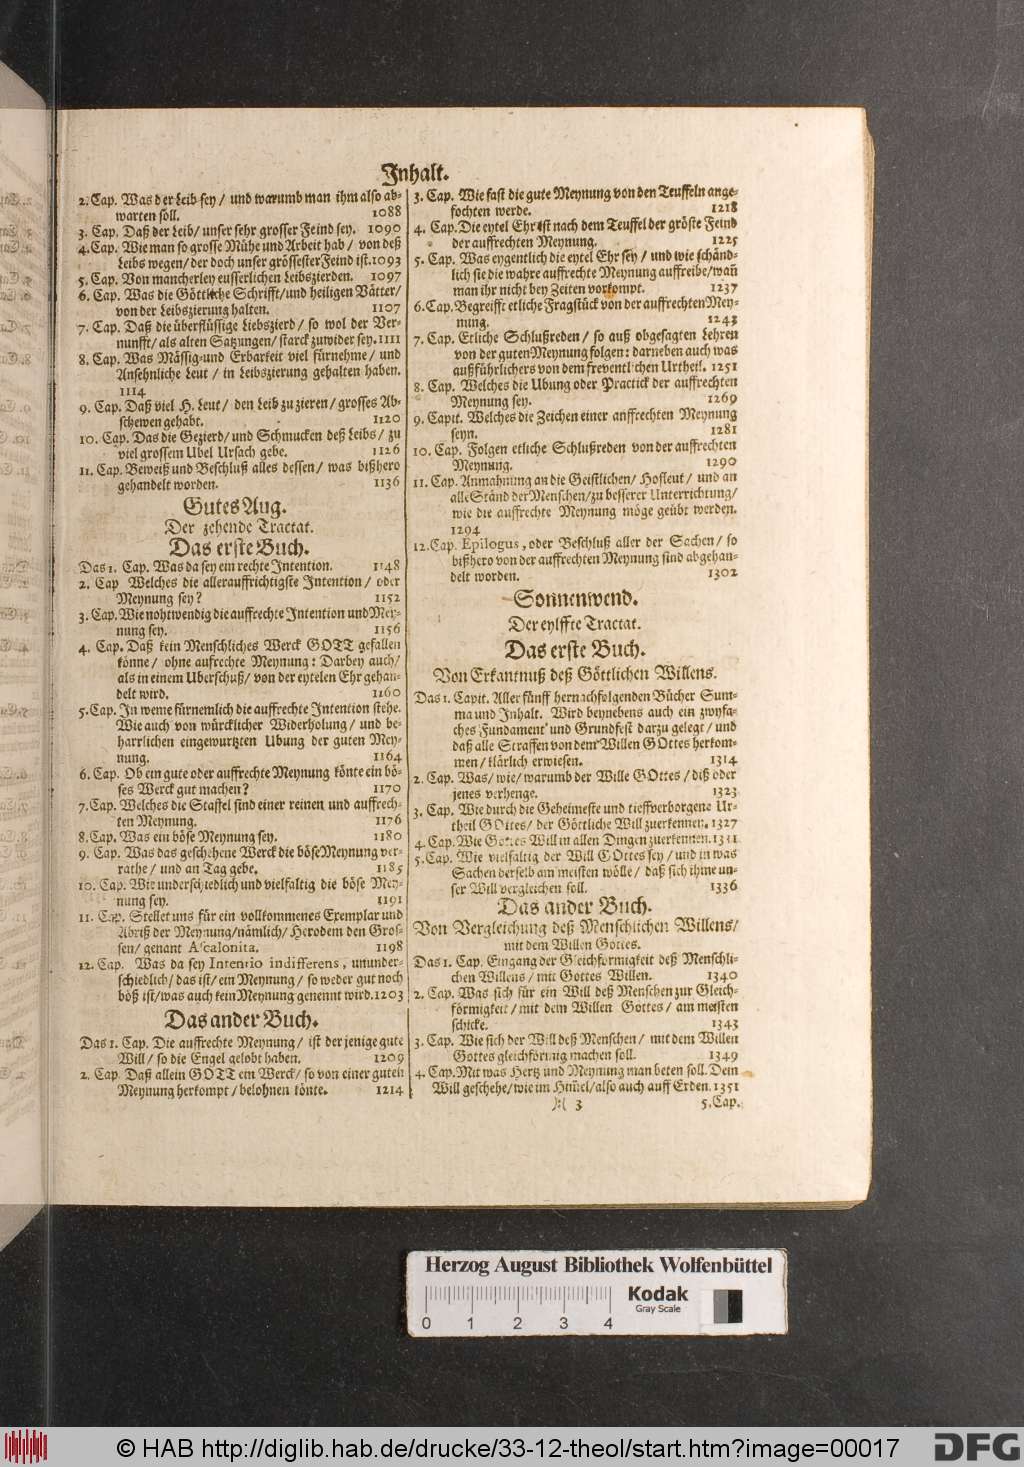 Inhalt.
2. Cap. Was der Leib sey / und warumb man ihm also ab-
warten soll. 1088
3. Cap. Daß der Leib / unser sehr grosser Feind sey. 1090
4. Cap. Wie man so grosse Mühe und Arbeit hab / von deß
Leibs wegen / der doch unser grössester Feind ist. 1093
5. Cap. Von mancherley eusserlichen Leibszierden. 1097
6. Cap. Was die Göttliche Schrifft / und heiligen Vätter /
von der Leibszierung halten. 1107
7. Cap. Daß die überflüssige Liebszierd / so wol der Ver-
nunfft / als alten Satzungen / starck zuwider sey. 1111
8. Cap. Was Mässig- und Erbarkeit viel fürnehme / und
Ansehnliche Leut / in Leibszierung gehalten haben.
1114
9. Cap. Daß viel H. Leut / den Leib zu zieren / grosses Ab-
schewen gehabt. 1120
10. Cap. Das die Gezierd / und Schmucken deß Leibs / zu
viel grossem Ubel Ursach gebe. 1126
11. Cap. Beweiß und Beschluß alles dessen / was bißhero
gehandelt worden. 1136
Gutes Aug.
Der zehende Tractat.
Das erste Buch.
Das 1. Cap. Was da sey ein rechte Intention. 1148
2. Cap Welches die allerauffrichtigste Intention / oder
Meynung sey? 1152
3. Cap. Wie nohtwendig die auffrechte Intention und Mey-
nung sey. 1156
4. Cap. Daß kein Menschliches Werck GOTT gefallen
könne / ohne aufrechte Meynung: Darbey auch /
als in einem Uberschuß / von der eytelen Ehr gehan-
delt wird. 1160
5. Cap. In weme fürnemlich die auffrechte Intention stehe.
Wie auch von würcklicher Widerholung / und be-
harrlichen eingewurtzten Ubung der guten Mey-
nung. 1164
6. Cap. Ob ein gute oder auffrechte Meynung könte ein bö-
ses Werck gut machen? 1170
7. Cap. Welches die Staffel sind einer reinen und auffrech-
ten Meynung. 1176
8. Cap. Was ein böse Meynung sey. 1180
9. Cap. Was das geschehene Werck die böse Meynung ver-
rathe / und an Tag gebe. 1185
10. Cap. Wie underschiedlich und vielfaltig die böse Mey-
nung sey. 1191
11. Cap. Stellet uns für ein vollkommenes Exemplar und
Abriß der Meynung / nämlich / Herodem den Gros-
sen / genant Ascalonita. 1198
12. Cap. Was da sey Intentio indifferens, ununder-
schiedlich / das ist / ein Meynung / so weder gut noch
böß ist / was auch kein Meynung genennt wird. 1203
Das ander Buch.
Das 1. Cap. Die auffrechte Meynung / ist der jenige gute
Will / so die Engel gelobt haben. 1209
2. Cap. Daß allein GOTT ein Werck / so von einer guten
Meynung herkompt / belohnen könte. 1214
3. Cap. Wie fast die gute Meynung von den Teuffeln ange-
fochten werde. 1218
4. Cap. Die eytel Ehr ist nach dem Teuffel der gröste Feind
der auffrechten Meynung. 1225
5. Cap. Was eygentlich die eytel Ehr sey / und wie schänd-
lich sie die wahre auffrechte Meynung auffreibe / wañ
man ihr nicht bey Zeiten vorkompt. 1237
6. Cap. Begreifft etliche Fragstück von der auffrechten Mey-
nung. 1243
7. Cap. Etliche Schlußreden / so auß obgesagten Lehren
von der guten Meynung folgen: darneben auch was
außführlichers von dem freventlichen Urtheil. 1251
8. Cap. Welches die Ubung oder Practick der auffrechten
Meynung sey. 1269
9. Capit. Welches die Zeichen einer auffrechten Meynung
seyn. 1281
10. Cap. Folgen etliche Schlußreden von der auffrechten
Meynung. 1290
11. Cap. Anmahnung an die Geistlichen / Hofleut / und an
alle Ständ der Menschen / zu besserer Unterrichtung /
wie die auffrechte Meynung möge geübt werden.
1294
12. Cap. Epilogus, oder Beschluß aller der Sachen / so
bißhero von der auffrechten Meynung sind abgehan-
delt worden. 1302
Sonnenwend.
Der eylffte Tractat.
Das erste Buch.
Von Erkantnuß deß Göttlichen Willens.
Das 1. Capit. Aller fünff hernachfolgenden Bücher Sum-
ma und Inhalt. Wird beynebens auch ein zwyfa-
ches Fundament und Grundfest darzu gelegt / und
daß alle Straffen von dem Willen GOttes herkom-
men / klärlich erwiesen. 1314
2. Cap. Was / wie / warumb der Wille GOttes / diß oder
jenes verhenge. 1323
3. Cap. Wie durch die Geheimeste und tieffverborgene Ur-
theil GOttes / der Göttliche Will zuerkennen. 1327
4. Cap. Wie Gottes Will in allen Dingen zuerkennen. 1331
5. Cap. Wie vielfaltig der Will GOttes sey / und in was
Sachen derselb am meisten wölle / daß sich ihme un-
ser Will vergleichen soll. 1336
Das ander Buch.
Von Vergleichung deß Menschlichen Willens /
mit dem Willen Gottes.
Das 1. Cap. Eingang der Gleichförmigkeit deß Menschli-
chen Willens / mit Gottes Willen. 1340
2. Cap. Was sich für ein Will deß Menschen zur Gleich-
förmigkeit / mit dem Willen Gottes / am meisten
schicke. 1343
3. Cap. Wie sich der Will deß Menschen / mit dem Willen
Gottes gleichförmig machen soll. 1349
4. Cap. Mit was Hertz und Meynung man beten soll. Dein
Will geschehe / wie im Him̃el / also auch auff Erden. 1351
):( 3 5. Cap.
Herzog August Bibliothek Wolfenbüttel
Kodak
Gray Scale
0 1 2 3 4
© HAB http://diglib.hab.de/drucke/33-12-theol/start.htm?image=00017
DFG